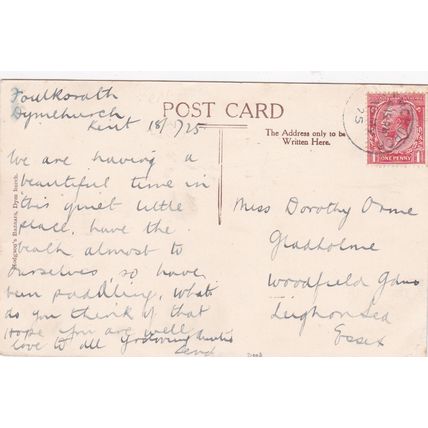 Foulksrath
Dymchurch
Kent 18/ /25
POST CARD
The Address only to be
Written Here.
ONE PENNY
We are having a
beautiful time in
this quiet little
place, have the
beach almost to
ourselves, so have
been paddling, what
do you think of that
Hope you are well
love to all
Miss Dorothy Orme
Gladholme
Woodfield Gdns
Leigh on Sea
Essex